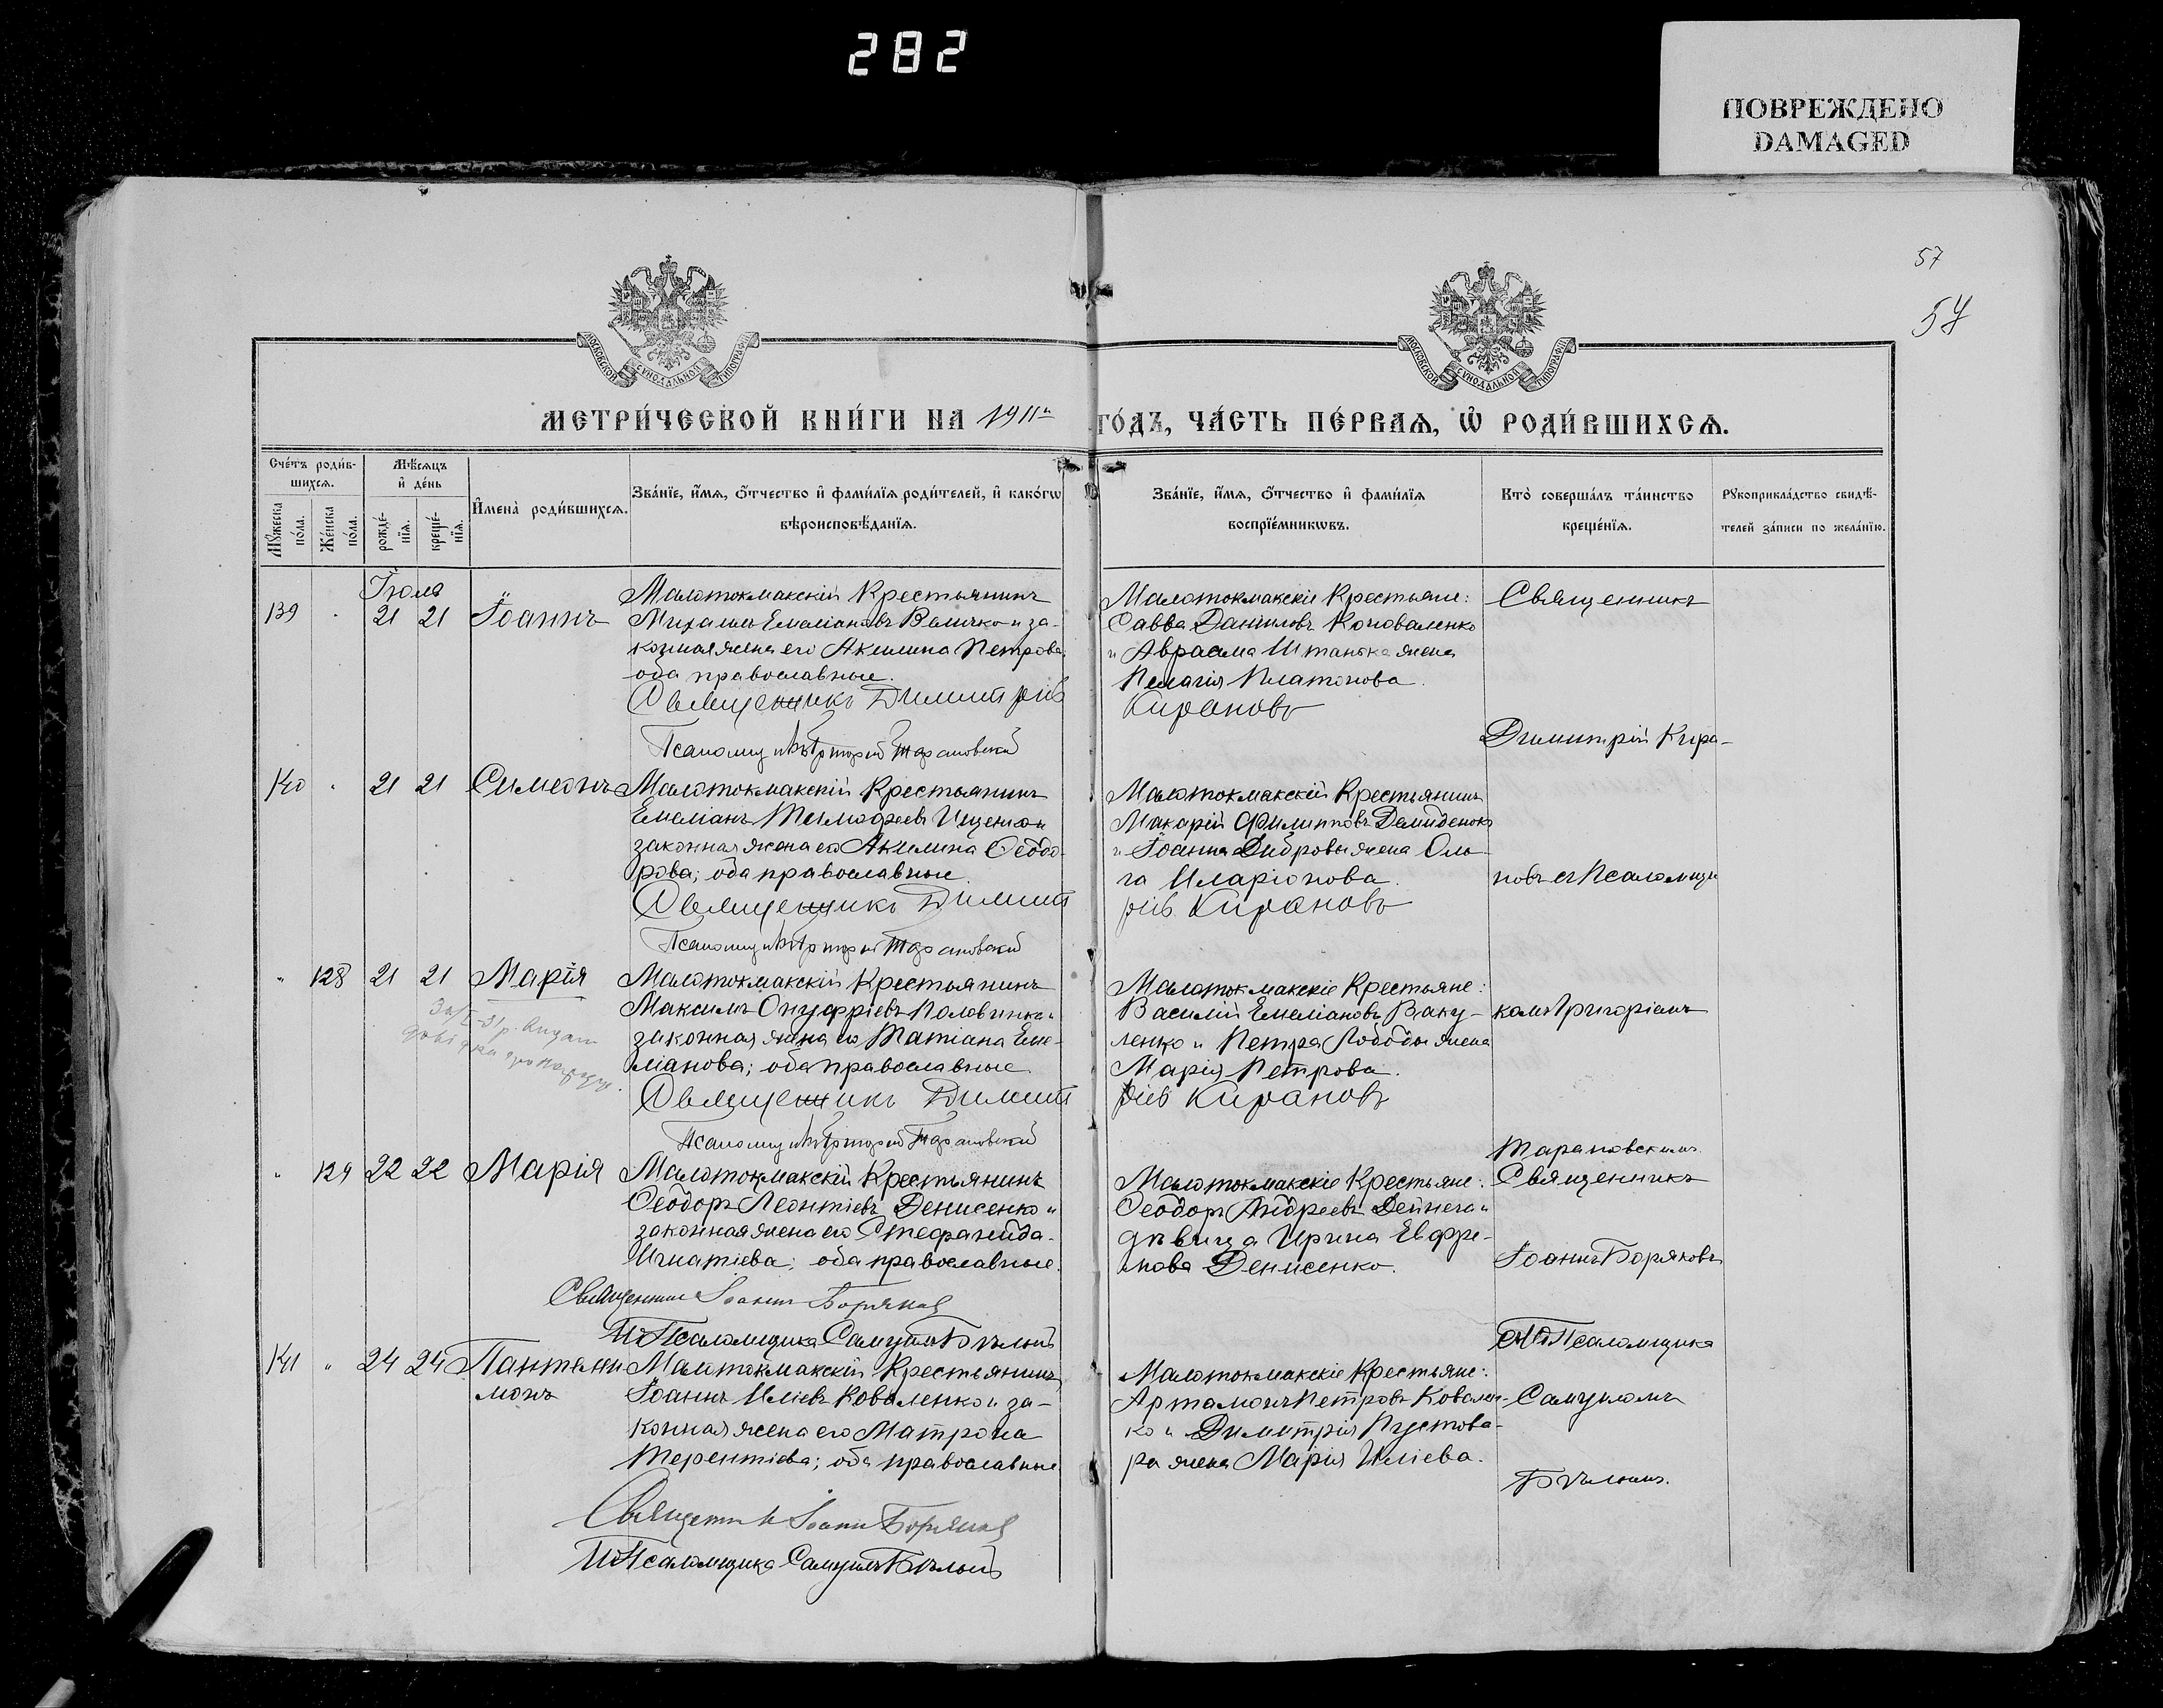 282
ПОВРЕЖДЕНО
DAMAGED
57
57
МОСКОВСКОЙ СѴНОДАЛЬНОЙ ТИПОГРАФІИ
МОСКОВСКОЙ СѴНОДАЛЬНОЙ ТИПОГРАФІИ
МЕТРИ́ЧЕСКОЙ КНИ́ГИ НА 1911й ГО́ДЪ, ЧА́СТЬ ПЕ́РВАѦ, Ѡ҆ РОДИ́ВШИХСѦ.
Сче́тъ роди́в-
шихсѧ.
Мꙋ́жеска по́ла.
Же́нска по́ла.
Мѣ́сѧцъ
и҆ де́нь
рожде́-
нїѧ.
креще́-
нїѧ.
И҆мена̀ роди́вшихсѧ.
Зва́нїе, и҆́мѧ, ѻ҆́тчество и҆ фами́лїѧ роди́телей, и҆ како́гѡ
вѣроисповѣ́данїѧ.
Зва́нїе, и҆́мѧ, ѻ҆́тчество и҆ фами́лїѧ
воспрїе́мникѡвъ.
Кто̀ соверша́лъ та́инство
креще́нїѧ.
Рꙋкоприкла́дство свидѣ́-
телей за́писи по жела́нїю.
Іюль
139 " 21 21 Іоаннъ
Малотокмакскій Крестьянинъ
Михаилъ Емеліановъ Величко и за-
конная жена его Акилина Петрова,
оба православные.
Священникъ Димитрій
Псаломщикъ Григорій Тарановскій
Малотокмакскіе Крестьяне:
Савва Даниловъ Коноваленко
и Авраама Штанька жена
Пелагія Платонова.
Кирановъ
Священникъ
Димитрій Кира-
140 " 21 21 Симеонъ
Малотокмакскій Крестьянинъ
Емеліанъ Тимофеевъ Ищенко и
законная жена его Акилина Ѳеодо-
рова; оба православные.
Священникъ Димит
Псаломщикъ Григорій Тарановскій
Малотокмакскій Крестьянинъ
Макарій Филипповъ Демиденко
и Іоанна Дибровы жена Оль-
га Иларіонова.
рій Кирановъ
новъ съ Псаломщи
" 128 21 21 Марія
Малотокмакскій Крестьянинъ
Максимъ Онуфріевъ Половинка и
законная жена его Татіана Еме-
ліанова; оба православные
Священникъ Димит
Псаломщикъ Григорій Тарановскій
Малотокмакскіе Крестьяне:
Василій Емеліановъ Ваку-
ленко и Петра Лободы жена
Марія Петрова.
рій Кирановъ
комъ Григоріемъ
Тарановскимъ
" 129 22 22 Марія
Малотокмакскій Крестьянинъ
Ѳеодоръ Леонтіевъ Денисенко и
законная жена его Стефанида
Игнатіева; оба православные.
Священникъ Іоаннъ Боряковъ
ИД Псаломщика Самуилъ Бѣлый
Малотокмакскіе Крестьяне:
Ѳеодоръ Андреевъ Дейнега и
дѣвица Ирина Евфре-
мова Денисенко.
Священникъ
Іоаннъ Боряковъ
ИД Псаломщика
141 " 24 24 Пантелеи-
монъ
Малотокмакскій Крестьянинъ
Іоаннъ Иліевъ Коваленко и за-
конная жена его Матрона
Терентіева; оба православные
Священникъ Іоаннъ Боряковъ
ИД Псаломщика Самуилъ Бѣлый
Малотокмакскіе Крестьяне:
Артамонъ Петровъ Ковален-
ко и Димитрія Пустова-
ра жена Марія Иліева.
Самуиломъ
Бѣлымъ.